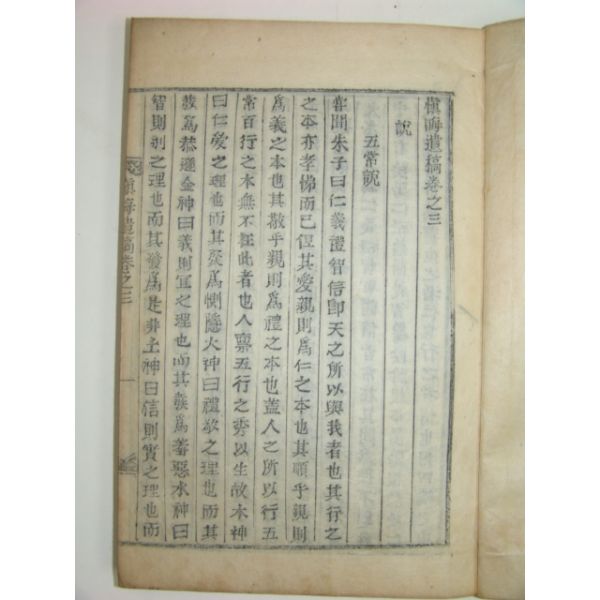 愼晦遺稿卷之三
說
五常說
嘗聞朱子曰仁義禮智信卽天之所以與我者也其行之
之本亦孝悌而已但其愛親則爲仁之本也其順乎親則
爲義之本也其敬乎親則爲禮之本也盖人之所以行五
常百行之本無不在此者也人禀五行之秀以生故木神
曰仁愛之理也而其發爲惻隱火神曰禮敬之理也而其
發爲恭遜金神曰義則宜之理也而其發爲羞惡水神曰
智則別之理也而其發爲是非土神曰信則實之理也而
愼晦遺稿卷之三